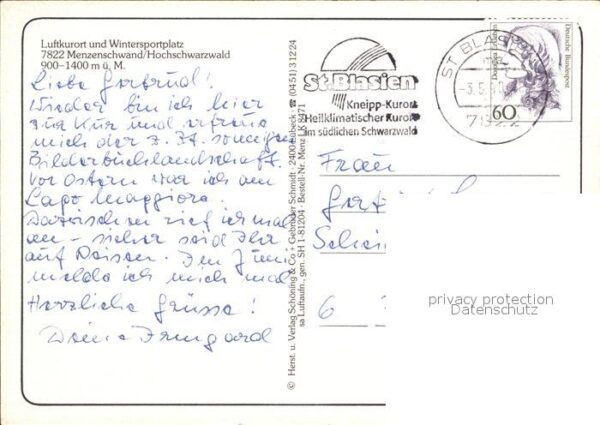 Luftkurort und Wintersportplatz
7822 Menzenschwand/Hochschwarzwald
900–1400 m ü. M.
Liebe Gertrud!
Wieder bin ich hier
zur Kur und erfreue
mich der z. Zt. sonnigen
Bilderbuchlandschaft.
Vor Ostern war ich am
Lago Maggiore.
Dazwischen rief ich mal
an – sicher seid Ihr
auf Reisen. Im Juni
melde ich mich mal
Herzliche Grüsse!
Deine Irmgard
© Herst. u. Verlag Schöning & Co + Gebrüder Schmidt · 2400 Lübeck · ☎ (0451) 31224
sa Luftaufn., gen. SH 1-81204 · Bestell-Nr. Menz LK 8971
St. Blasien
Kneipp-Kurort
Heilklimatischer Kurort
im südlichen Schwarzwald
ST BLASIEN
7822
Deutsche Bundespost
60
Frau
6
privacy protection
Datenschutz